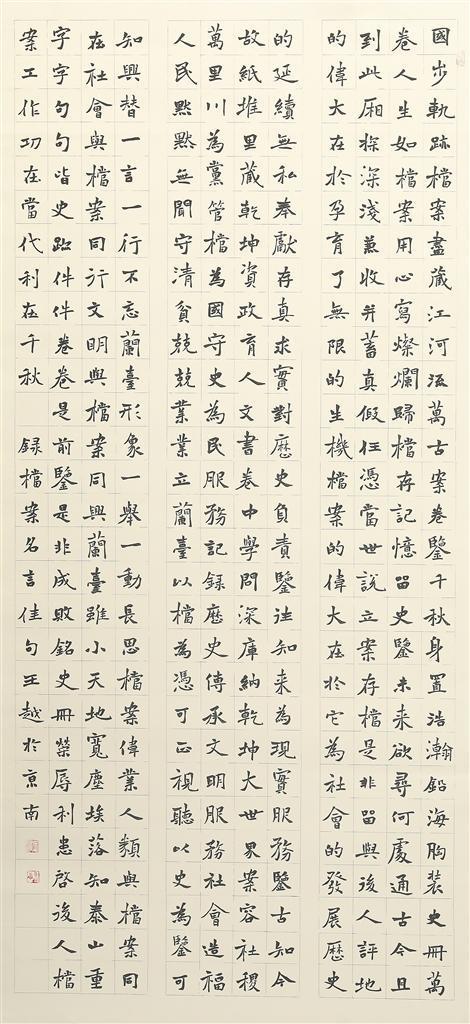 國步軌跡檔案盡藏江河流萬古案卷鑒千秋身置浩瀚鉛海胸裝史冊萬
卷人生如檔案用心寫燦爛歸檔存記憶留史鑒未来欲尋何處通古今且
到此厢探深淺兼收并蓄真假任憑當世説立案存檔是非留與後人評地
的偉大在於孕育了無限的生機檔案的偉大在於它為社會的發展歷史
的延續無私奉獻存真求實對歷史負責鑒往知来為現實服務鑒古知今
故紙堆里藏乾坤資政育人文書卷中學問深庫納乾坤大世界案容社稷
萬里川為黨管檔為國守史為民服務記録歷史傳承文明服務社會造福
人民默默無聞守清貧兢兢業業立蘭臺以檔為憑可正視聽以史為鑒可
知興替一言一行不忘蘭臺形象一舉一動長思檔案偉業人類與檔案同
在社會與檔案同行文明與檔案同興蘭臺雖小天地寬塵埃落知泰山重
字字句句皆史跡件件卷卷是前鑒是非成敗銘史冊榮辱利患啓後人檔
案工作功在當代利在千秋 録檔案名言佳句王越於京南